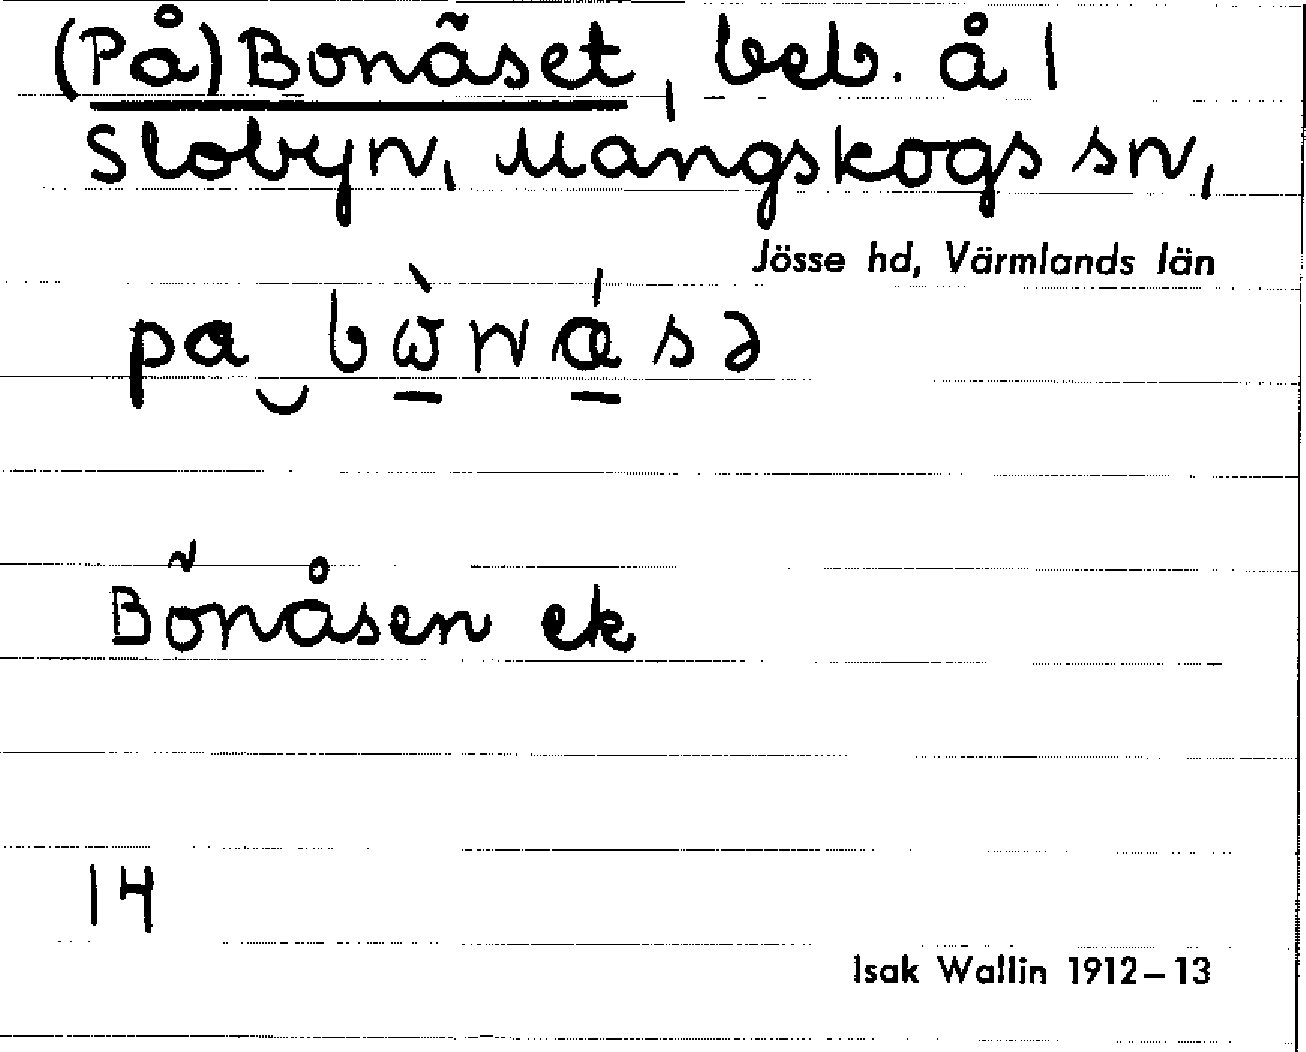 (På) Bonäset, beb. å 1
Slobyn, Mangskogs sn,
Jösse hd, Värmlands län
pa‿bὼ̱ná̱sə
Bönåsen ek
14
Isak Wallin 1912–13